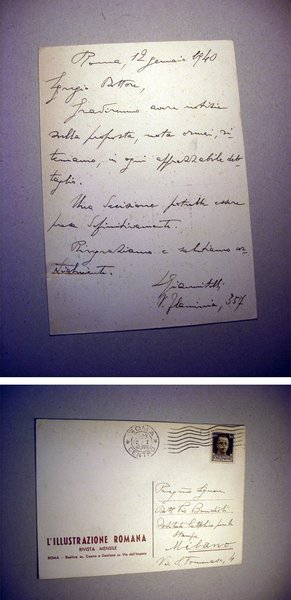 Roma, 12 gennaio 1940
Egregio Dottore,
Gradiremo avere notizie
sulla proposta, nota ormai, ri-
teniamo, in ogni apprezzabile det-
taglio.
Una decisione potrebbe essere
presa definitivamente.
Ringraziamo e salutiamo cor-
dialmente.
LGiannitelli
V. Flaminia, 357
ROMA
CENTRO
L'ILLUSTRAZIONE ROMANA
RIVISTA MENSILE
ROMA - Basilica ss. Cosma e Damiano su Via dell'Impero
Pregmo Signore
Dott. Pio Bondioli
Istituto Cattolico per la
Stampa
Milano
Via S. Tommaso, 4